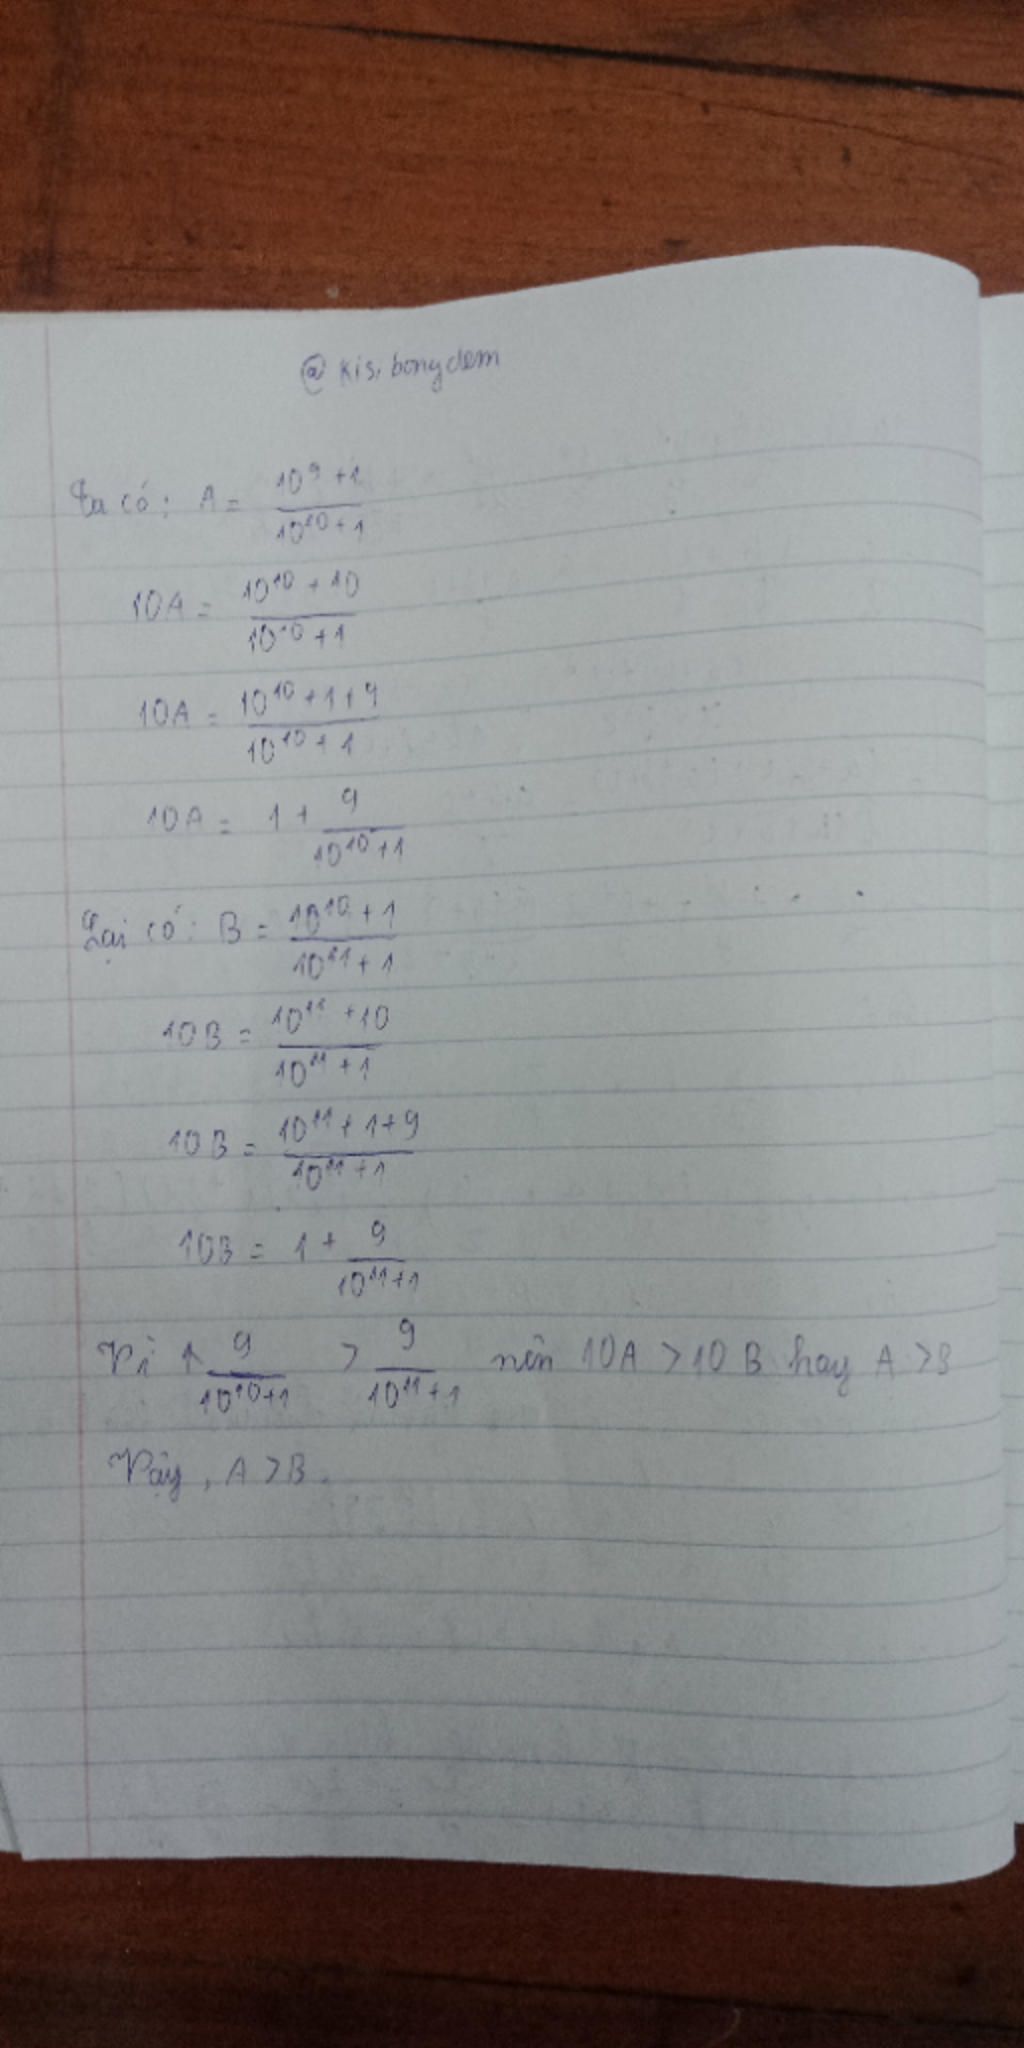 @kisibongdem
Ta có: A = \frac{10^9+1}{10^{10}+1}
10A = \frac{10^{10}+10}{10^{10}+1}
10A = \frac{10^{10}+1+9}{10^{10}+1}
10A = 1 + \frac{9}{10^{10}+1}
Lại có: B = \frac{10^{10}+1}{10^{11}+1}
10B = \frac{10^{11}+10}{10^{11}+1}
10B = \frac{10^{11}+1+9}{10^{11}+1}
10B = 1 + \frac{9}{10^{11}+1}
Vì \frac{9}{10^{10}+1} > \frac{9}{10^{11}+1} nên 10A > 10B hay A > B
Vậy, A > B.